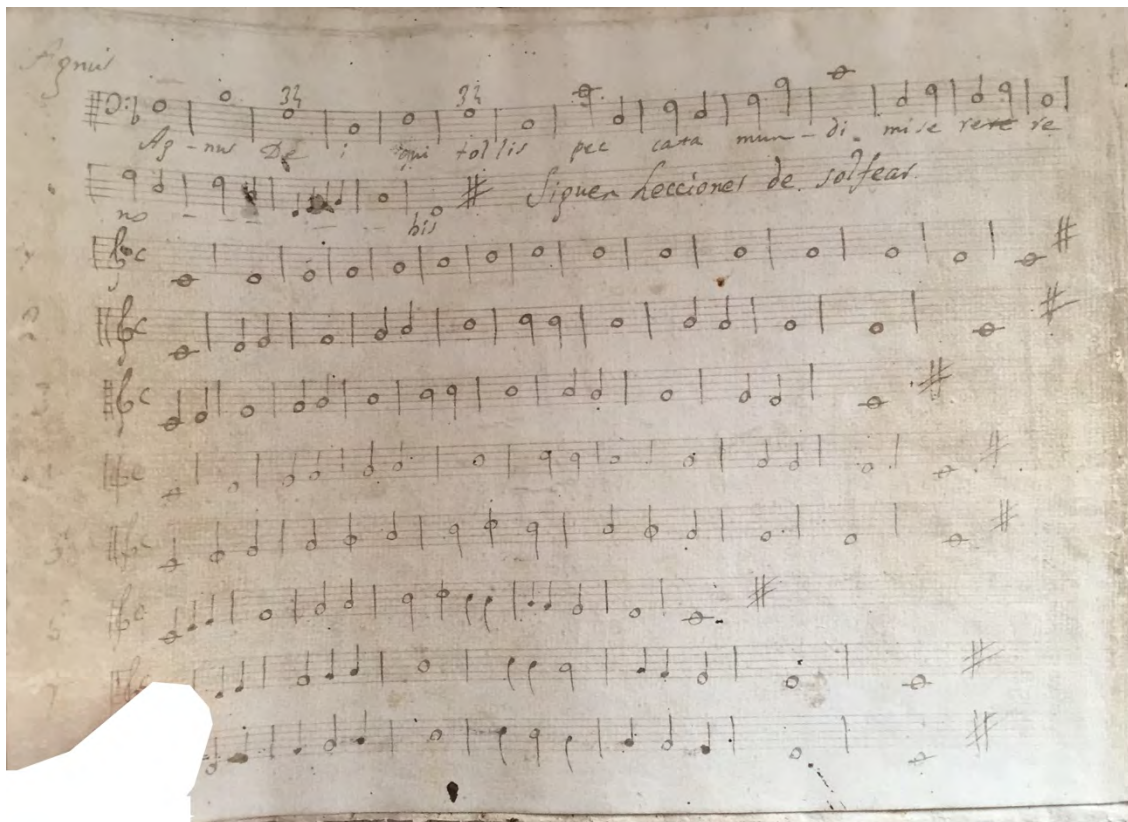 Agnus
34 34
Ag - nus De i qui tol lis pec cata mun - di mi se re re
no - - - - - bis Siguen Lecciones de solfear.
2
3
5
7